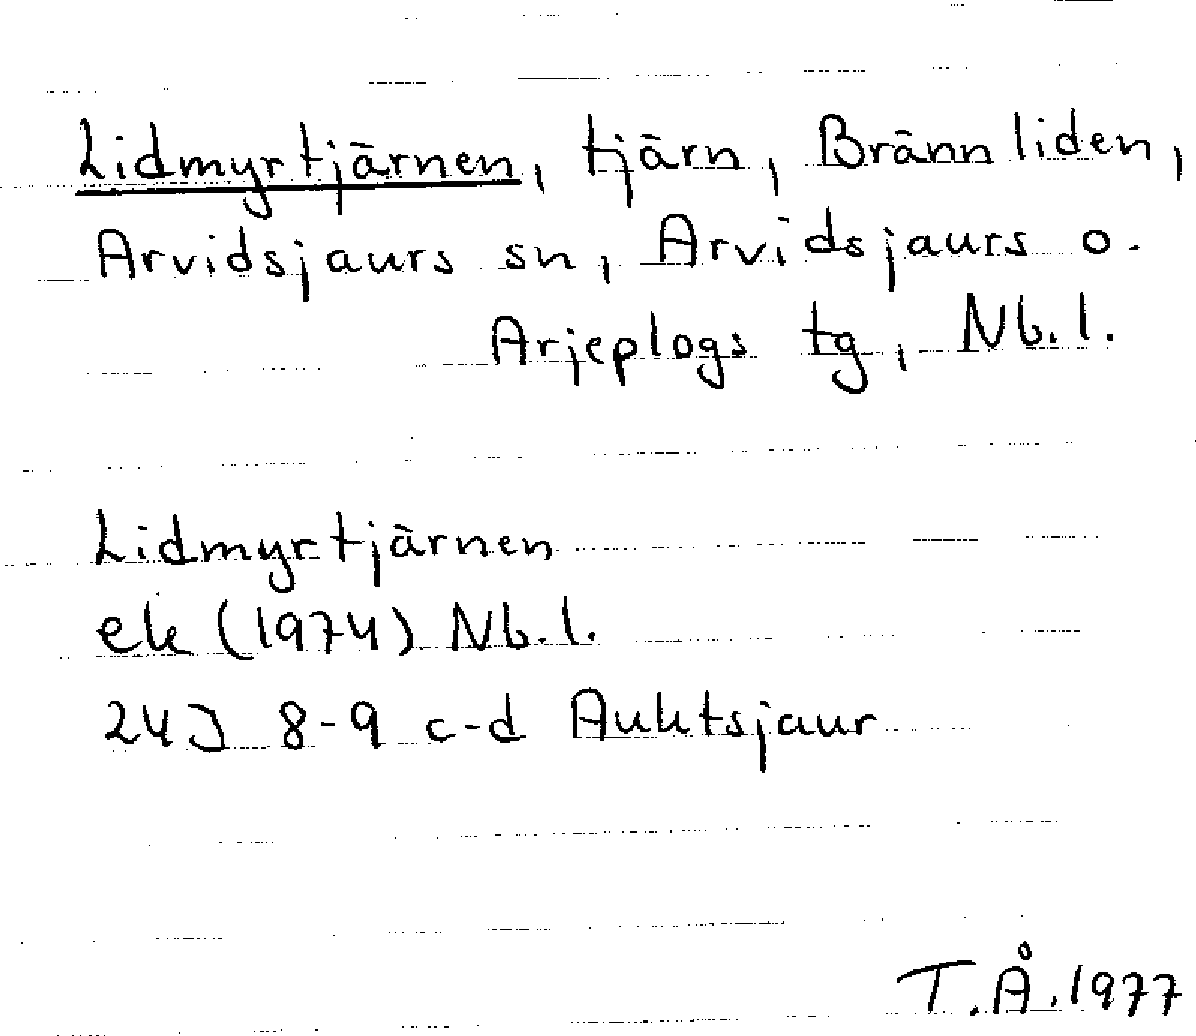 Lidmyrtjärnen, tjärn, Brännliden,
Arvidsjaurs sn, Arvidsjaurs o.
Arjeplogs tg, Nb.l.
Lidmyrtjärnen
ek (1974) Nb.l.
24J 8-9 c-d Auktsjaur
T.Å.1977